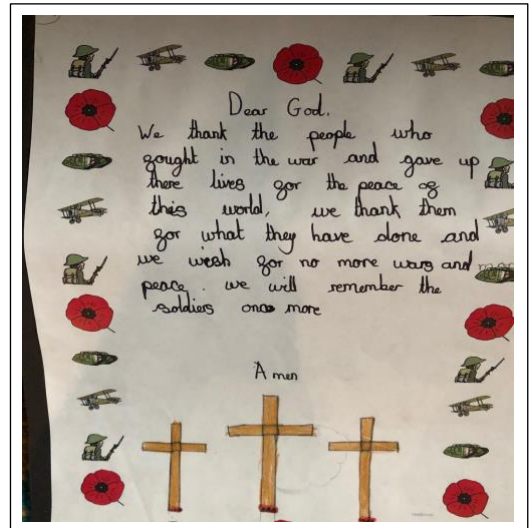 Dear God,
We thank the people who
fought in the war and gave up
there lives for the peace of
this world, we thank them
for what they have done and
we wish for no more wars and
peace. we will remember the
soldiers once more
Amen